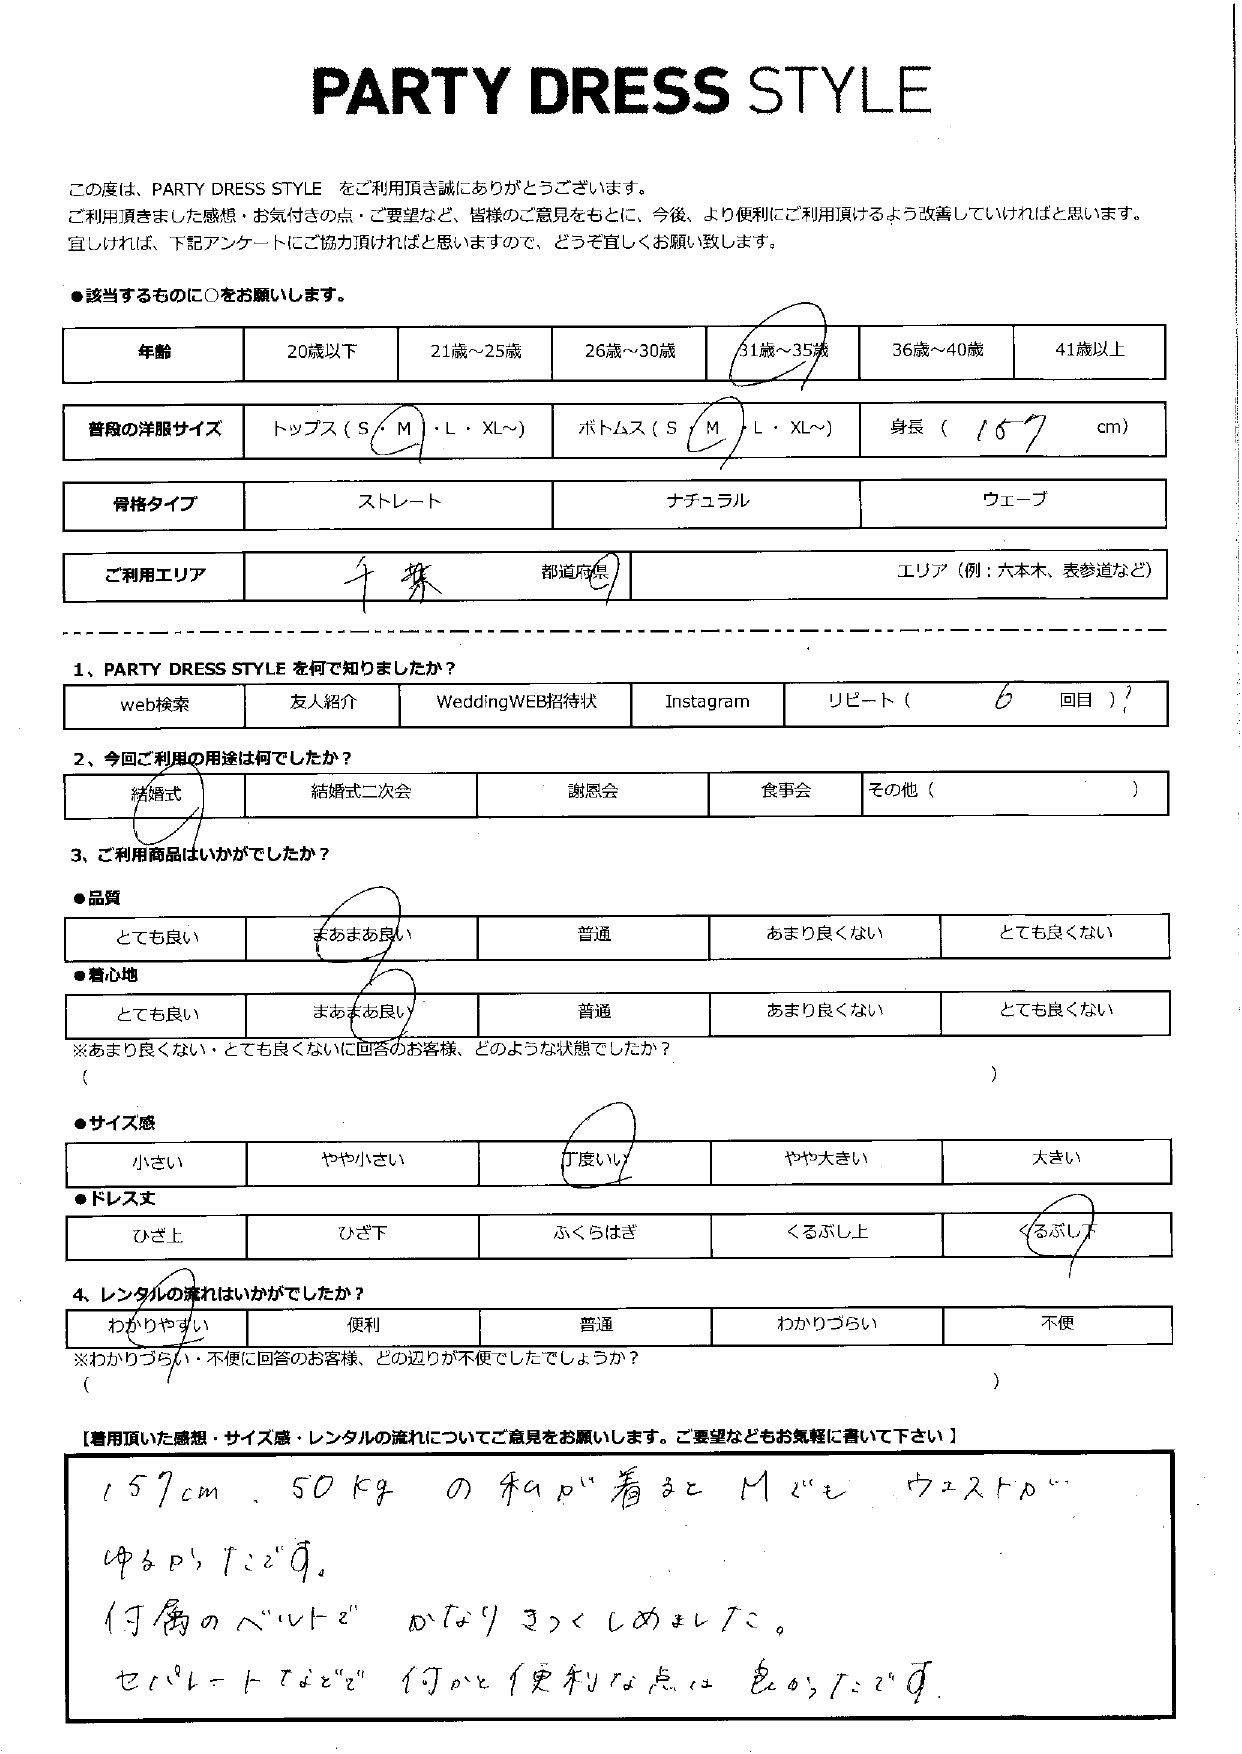 PARTY DRESS STYLE
この度は、PARTY DRESS STYLE をご利用頂き誠にありがとうございます。
ご利用頂きました感想・お気付きの点・ご要望など、皆様のご意見をもとに、今後、より便利にご利用頂けるよう改善していければと思います。
宜しければ、下記アンケートにご協力頂ければと思いますので、どうぞ宜しくお願い致します。
●該当するものに○をお願いします。
年齢 20歳以下 21歳～25歳 26歳～30歳 31歳～35歳 36歳～40歳 41歳以上
普段の洋服サイズ トップス ( S ・ M ・ L ・ XL～) ボトムス ( S ・ M ・ L ・ XL～) 身長 ( 157 cm)
骨格タイプ ストレート ナチュラル ウェーブ
ご利用エリア 千葉 都道府県 エリア（例：六本木、表参道など）
1、PARTY DRESS STYLE を何で知りましたか？
web検索 友人紹介 WeddingWEB招待状 Instagram リピート ( 6 回目 ) ?
2、今回ご利用の用途は何でしたか？
結婚式 結婚式二次会 謝恩会 食事会 その他 ( )
3、ご利用商品はいかがでしたか？
●品質
とても良い まあまあ良い 普通 あまり良くない とても良くない
●着心地
とても良い まあまあ良い 普通 あまり良くない とても良くない
※あまり良くない・とても良くないに回答のお客様、どのような状態でしたか？
( )
●サイズ感
小さい やや小さい 丁度いい やや大きい 大きい
●ドレス丈
ひざ上 ひざ下 ふくらはぎ くるぶし上 くるぶし下
4、レンタルの流れはいかがでしたか？
わかりやすい 便利 普通 わかりづらい 不便
※わかりづらい・不便に回答のお客様、どの辺りが不便でしたでしょうか？
( )
【着用頂いた感想・サイズ感・レンタルの流れについてご意見をお願いします。ご要望などもお気軽に書いて下さい】
157cm、50kg の私が着るとMでも ウエストが
ゆるかったです。
付属のベルトで かなりきつくしめました。
セパレートなどで 何かと便利な点は 良かったです。